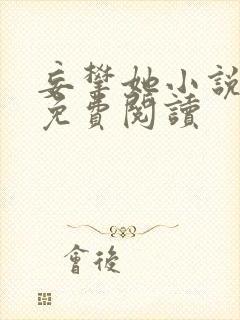 妄攀她小說
免費閱讀
會後